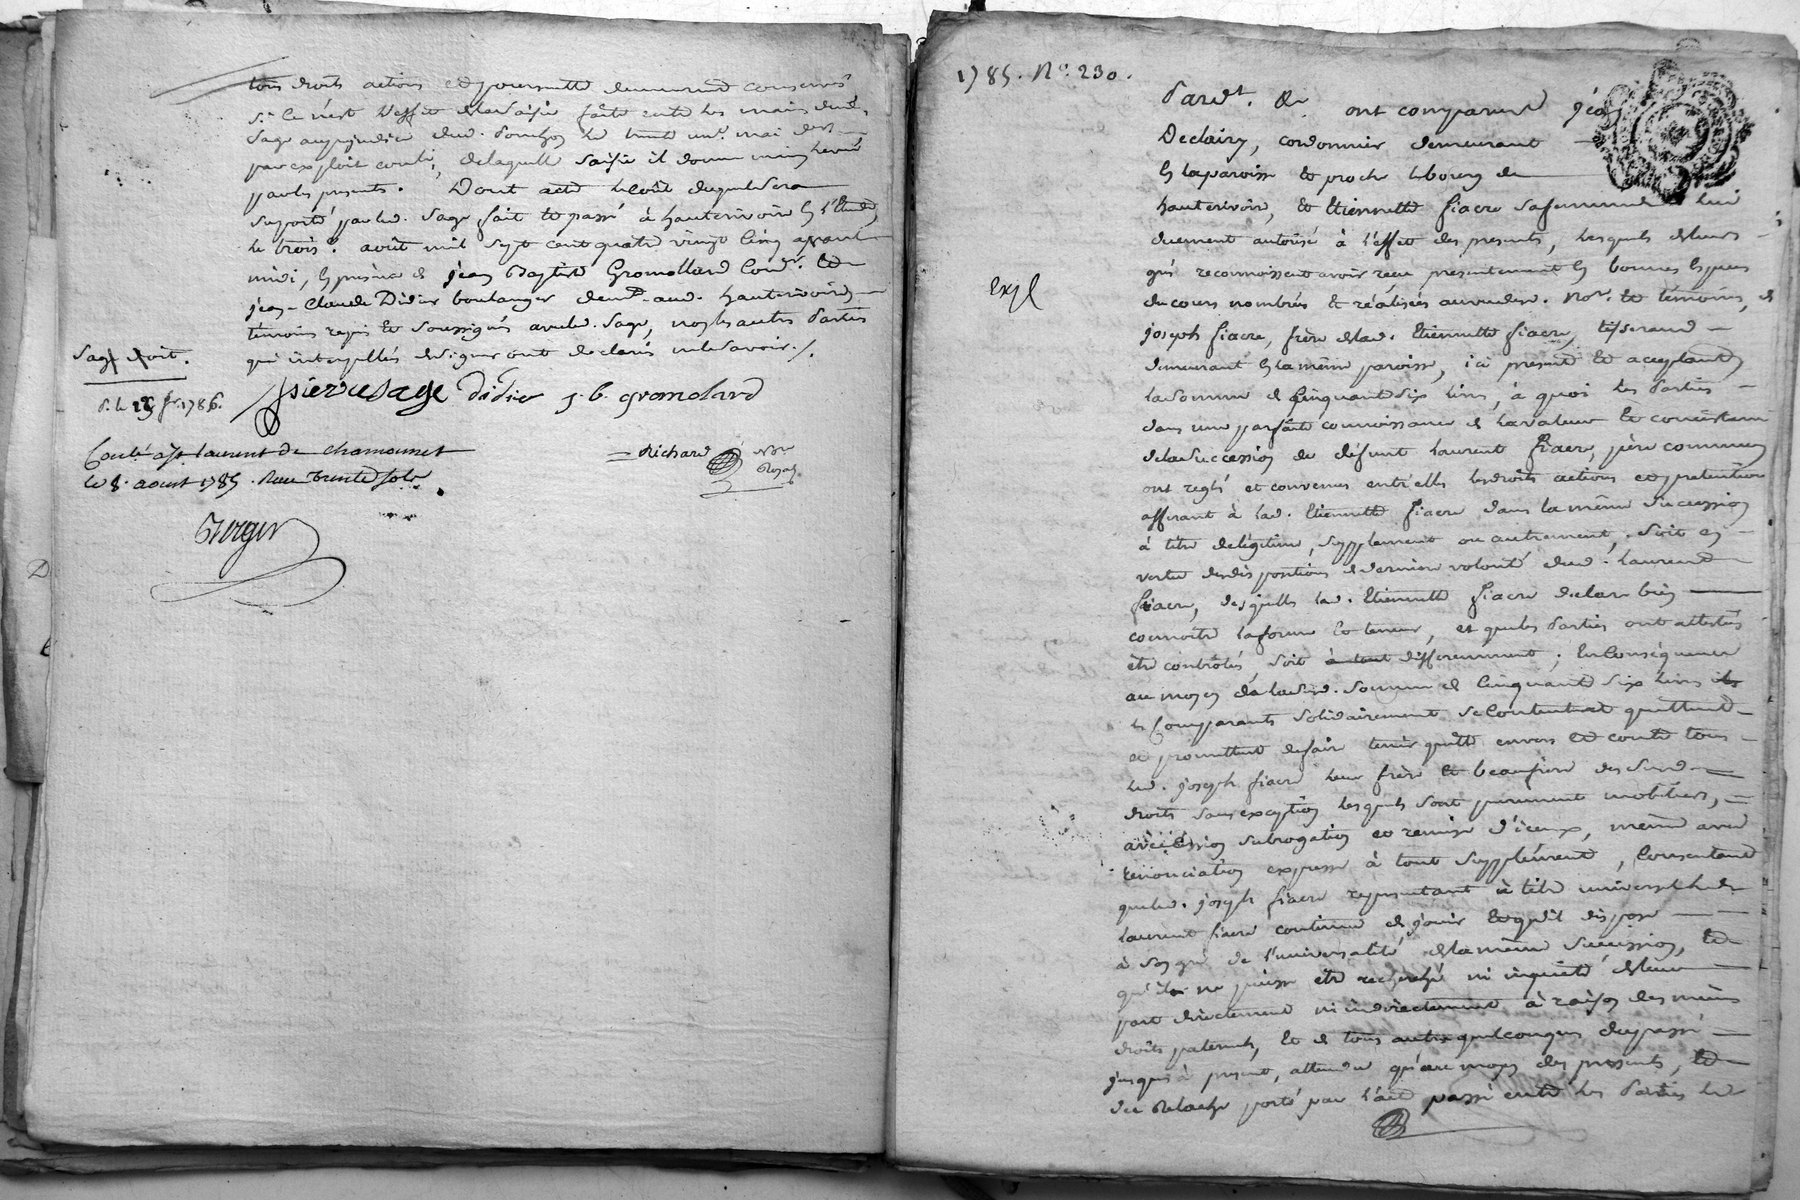 tous droits actions et poursuitte demeurant conservés
si ce n'est l'effet de la saisie faite entre les mains dud.
Sage au préjudice dud. le trente un mai der
par exploit de laquelle saisie il donne main levée
par les presents. Dont acte le coût duquel sera
suporté par led. Sage fait et passé à hauterivoire en l'Etude,
le trois août mil sept cent quatre vingt cinq avant
midi, en présence de jean Baptiste Gromollard Cord.r et
jean-Claude Didier boulanger dem.t aud. hauterivoire,
témoins requis et soussignés avec led. Sage, non les autres Parties
qui interpellés de signer ont déclaré ne le savoir./.
Sage doit.
pierre Sage Didier j. b. gromolard
1786.
Richard no.re Royal
Conlé à St laurent de Chamousset
le 8. aoust 1785. Reçu trente sols
Verger
1785. N.o 230.
Pard.t &a ont comparu jean
Declairy, cordonnier demeurant
en la paroisse et proche le bourg de
hauterivoire, et Etiennette fiacre sa femme de lui
duement autorisé à l'effet des presents, lesquels de leurs
gré reconnoissent avoir reçu presentement en bonnes Espèces
de cours nombrés et réalisées au vu desd. No.re et témoins, de
Expé
joseph fiacre, frère de lad. Etiennette fiacre, tisserand
demeurant en la même paroisse, ici present et acceptant
la somme de Cinquante six livres, à quoi les Parties
dans une parfaite connoissance de la valeur et consistance
de la succession de défunt laurent fiacre, père commun
ont reglé et convenus entr'elles les droits actions et pretentions
afferant à lad. Etiennette fiacre dans la même succession
à titre de légitime, supplement ou autrement, soit en
vertu des dispositions de derniere volonté dud. laurent
fiacre, desquelles lad. Etiennette fiacre declare bien
connoitre la forme et teneur, et que les Parties ont attestés
être contrôlés, soit differemment; En Conséquence
au moyen de la susd. somme de Cinquante six livres
les Comparants solidairement se Contentent quittent
et promettent de faire tenir quitte envers et contre tous
led. joseph fiacre leur frère et beaufrère des susd.
droits sans exception lesquels sont purement mobiliers,
avec cession subrogation et remise d'iceux, meme avec
renonciation expresse à tout supplément, Consentent
que led. joseph fiacre représentant à titre universel led.
laurent fiacre continue de jouir et qu'il dispose
à son gré de l'universalité de la même succession, et
qu'il ne puisse être recherché ni inquiété de leur
part directement ni indirectement à raison des mêmes
droits paternels, et de tous autres quelconques du passé
jusqu'à present, attendu qu'au moyen des presents, et
du Relache porté par l'acte passé entre les Parties le